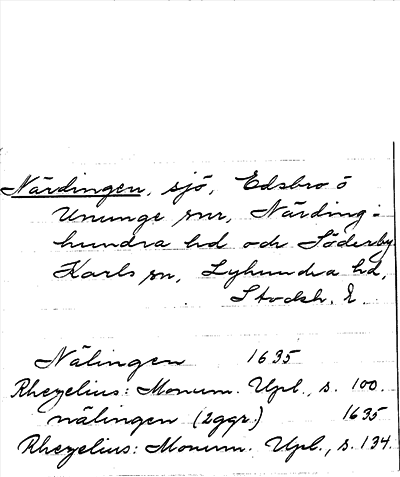 Närdingen, sjö, Edsbro o
Ununge snr, Närding-
hundra hd och Söderby
Karls sn, Lyhundra hd,
Stocksh. l.
Nälingen 1635
Rhezelius: Monum. Upl., s. 100.
nälingen (2ggr.) 1635
Rhezelius: Monum. Upl., s. 134.